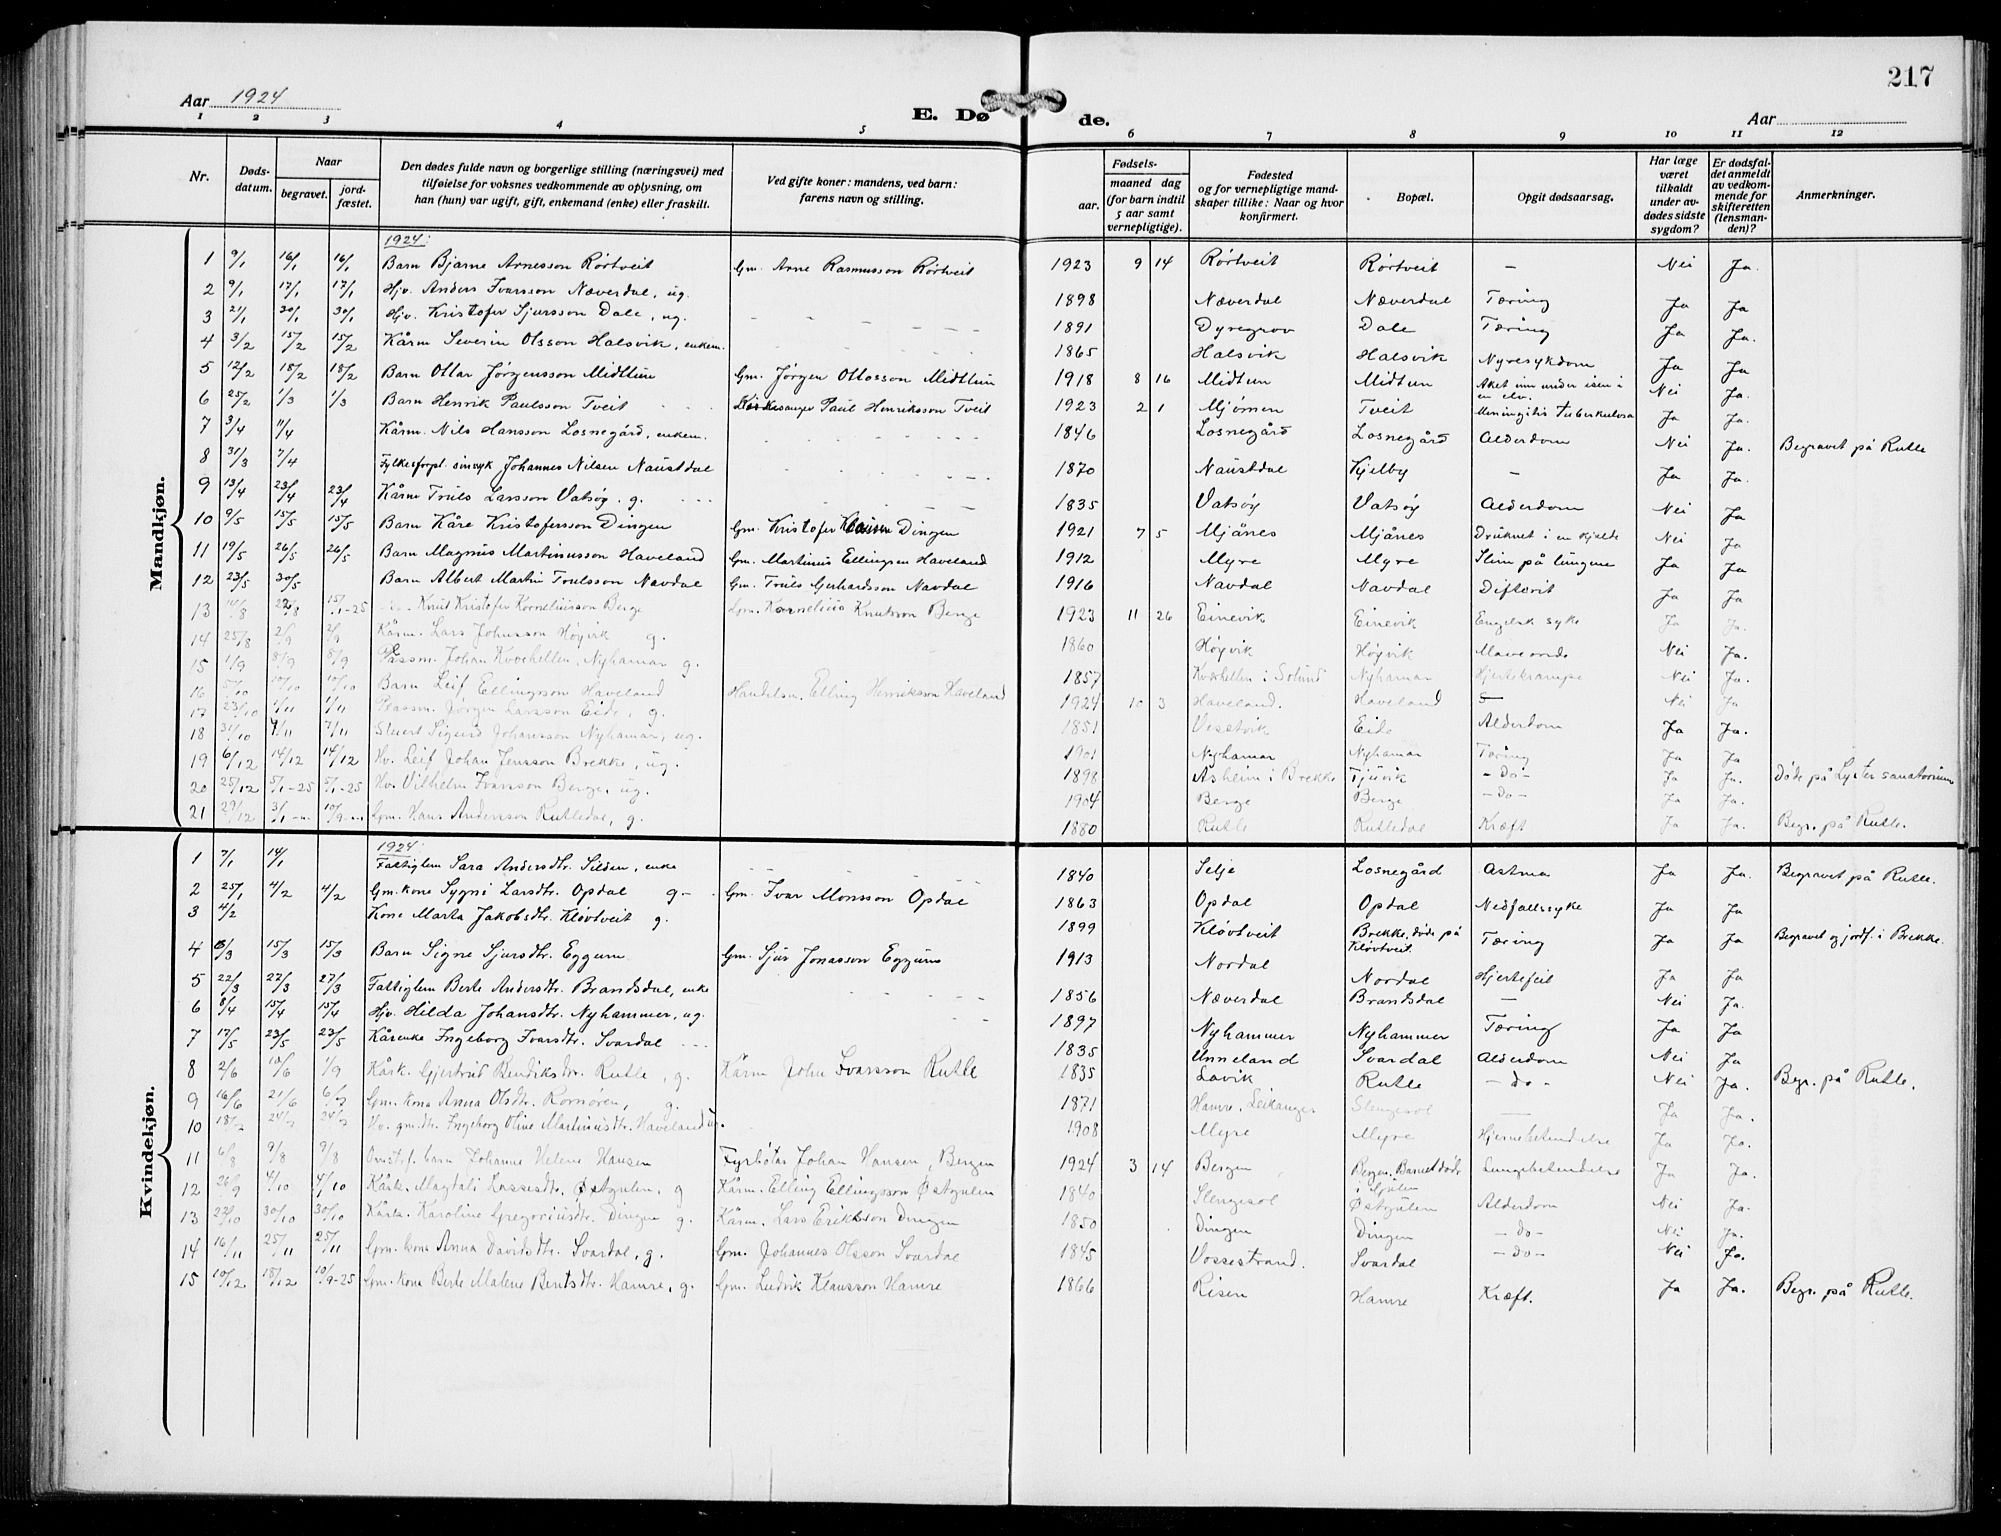 217
Aar 1924
E. Døde.
Aar
1 2 3 4 5 6 7 8 9 10 11 12
Nr.
Døds-datum.
Naar
begravet.
jord-fæstet.
Den dødes fulde navn og borgerlige stilling (næringsvei) med
tilføielse for voksnes vedkommende av oplysning, om
han (hun) var ugift, gift, enkemand (enke) eller fraskilt.
Ved gifte koner: mandens, ved barn:
farens navn og stilling.
Fødsels-
aar.
maaned dag
(for barn indtil
5 aar samt
vernepligtige).
Fødested
og for vernepligtige mand-
skaper tillike: Naar og hvor
konfirmert.
Bopæl.
Opgit dødsaarsag.
Har læge
været
tilkaldt
under av-
dødes sidste
sygdom?
Er dødsfal-
det anmeldt
av vedkom-
mende for
skifteretten
(lensman-
den)?
Anmerkninger.
Mandkjøn.
1924:
1 9/1 16/1 16/1 Barn Bjarne Arnesson Rørtveit Gm. Arne Rasmusson Rørtveit 1923 9 14 Rørtveit Rørtveit — Nei Ja.
2 9/1 17/1 17/1 Hjv. Anders Ivarsson Næverdal, ug. 1898 Næverdal Næverdal Tæring Ja Ja
3 21/1 30/1 30/1 Hjv. Kristofer Sjursson Dale, ug. 1891 Dyregrov Dale Tæring Ja Ja.
4 3/2 15/2 15/2 Kårm Severin Olsson Halsvik, enkem. 1865 Halsvik Halsvik Nyresykdom Ja Ja
5 12/2 18/2 18/2 Barn Ottar Jørgensson Midttun Gm. Jørgen Ottosson Midttun 1918 8 16 Midtun Midtun Aket inn under isen i en elv. Nei Ja.
6 25/2 1/3 1/3 Barn Henrik Paulsson Tveit Kirkesanger Paul Henriksson Tveit 1923 2 1 Mjømen Tveit Meningitis tuberkulosa Ja Ja.
7 3/4 11/4 Kårm. Nils Hansson Losnegård, enkem. 1846 Losnegård Losnegård Alderdom Nei Ja. Begravet på Rutle
8 31/3 7/4 Fylkesforpl. sinsyk Johannes Nilsen Naustdal 1870 Naustdal Kjelby — Ja Ja.
9 13/4 23/4 23/4 Kårm Truls Larsson Vatsøy. g. 1835 Vatsøy Vatsøy Alderdom Nei Ja
10 9/5 15/5 15/5 Barn Kåre Kristofersson Dingen Gm. Kristofer Klausen Dingen 1921 7 5 Mjånes Mjånes Druknet i en kjelde Nei Ja
11 19/5 26/5 26/5 Barn Magnus Martinusson Haveland Gm. Martinus Ellingsen Haveland 1912 Myre Myre Slim på lungene Ja Ja
12 23/5 30/5 Barn Albert Martin Trulsson Navdal Gm. Truls Gerhardsson Navdal 1916 Navdal Navdal Difterit Ja Ja
13 14/8 22/8 15/1-25 — Knut Kristofer Korneliusson Berge Gm. Kornelius Knutsson Berge 1923 11 26 Einevik Einevik Engelsk syke Ja Ja.
14 25/8 2/9 2/9 Kårm. Lars Johnsson Høyvik g. 1860 Høyvik Høyvik Maveonde Nei Ja.
15 1/9 8/9 8/9 Plassm. Johan Kvochellen, Nyhamar g. 1857 Kvochellen i Solund Nyhamar Hjertekrampe Nei Ja.
16 5/10 10/10 10/10 Barn Leif Ellingsson Haveland Handelsm. Elling Henriksson Haveland 1924 10 3 Haveland. Haveland — Nei Ja
17 23/10 1/11 1/11 Plassm. Jørgen Larsson Eide, g. 1851 Vesetvik Eide Alderdom Ja Ja.
18 31/10 7/11 7/11 Stuert Sigurd Johansson Nyhamar, ug. 1901 Nyhamar Nyhamar Tæring Ja Ja
19 6/12 14/12 14/12 Hv. Leif Johan Jensson Brekke, ug. 1898 Asheim i Brekke Tjuvik —do— Ja Ja. Døde på Lyster sanatorium
20 25/12 5/1-25 5/1-25 Hv. Vilhelm Ivarsson Berge, ug. 1904 Berge Berge —do— Ja Ja
21 29/12 3/1 10/9 Gm. Hans Andersson Rutledal, g. 1880 Rutle Rutledal Kræft Ja Ja. Begr. på Rutle.
Kvindekjøn.
1924:
1 7/1 14/1 Fattiglem Sara Andersdtr. Silden, enke 1840 Selje Losnegård Astma Ja Ja. Begravet på Rutle.
2 25/1 4/2 4/2 Gm.kone Sygni Larsdtr. Opdal g— Gm. Ivar Monsson Opdal 1863 Opdal Opdal Nedfallssyke Ja Ja
3 4/2 Kone Marta Jakobsdtr. Kløvtveit g. 1899 Kløvtveit Brekke, døde på Kløvtveit Tæring Ja Ja Begravet og jordf. i Brekke.
4 5/3 15/3 15/3 Barn Signe Sjursdtr. Eggum Gm. Sjur Jonasson Eggum 1913 Nordal Nordal Hjertefeil Ja Ja
5 22/3 27/3 27/3 Fattiglem Berte Andersdtr. Brandsdal, enke 1856 Næverdal Brandsdal — Nei Ja.
6 8/4 15/4 15/4 Hjv. Hilda Johansdtr. Nyhammer, ug. 1897 Nyhammer Nyhammer Tæring Ja Ja
7 17/5 23/5 23/5 Kårenke Ingeborg Ivarsdtr. Svardal 1835 Unneland Svardal Alderdom Nei Ja
8 2/6 10/6 1/9 Kårk. Gjertrud Bendiksdtr. Rutle, g. Kårm John Ivarsson Rutle 1835 Lavik Rutle —do— Nei Ja. Begr. på Rutle.
9 16/6 21/6 6/7 Gm. kona Anna Olsdtr. Kornøren, g. 1871 Hamre, Leikanger Slengesol — Ja Ja.
10 18/7 24/7 24/7 Hv. gm.dtr. Ingeborg Oline Martinusdtr. Haveland ug. 1908 Myre Myre Hjernebetendelse Ja Ja.
11 6/8 9/8 9/8 Omstr. barn Johanne Helene Hansen Fyrbøtar Johan Hansen, Bergen 1924 3 14 Bergen Bergen, Barnet døde i Gjulen Lungebetendelse Ja Ja.
12 26/9 4/10 4/10 Kårk. Magdali Lassesdtr. Østgulen, g Kårm. Elling Ellingsson Østgulen 1840 Slengesol Østgulen Alderdom Nei Ja.
13 22/10 30/10 30/10 Kårk. Karoline Gregoriusdtr. Dingen g. Kårm. Lars Eriksson Dingen 1850 Dingen Dingen —do— Nei Ja.
14 16/11 25/11 25/11 Gm. kone Anna Davidsdtr. Svardal, g. Gm. Johannes Olsson Svardal 1845 Vossestrand. Svardal —do— Nei Ja.
15 10/12 18/12 10/9-25 Gm. kone Berte Malene Berntsdtr. Hamre, g. Gm. Ludvik Klausson Hamre 1866 Risen Hamre Kræft. Ja Ja. Begr. på Rutle.